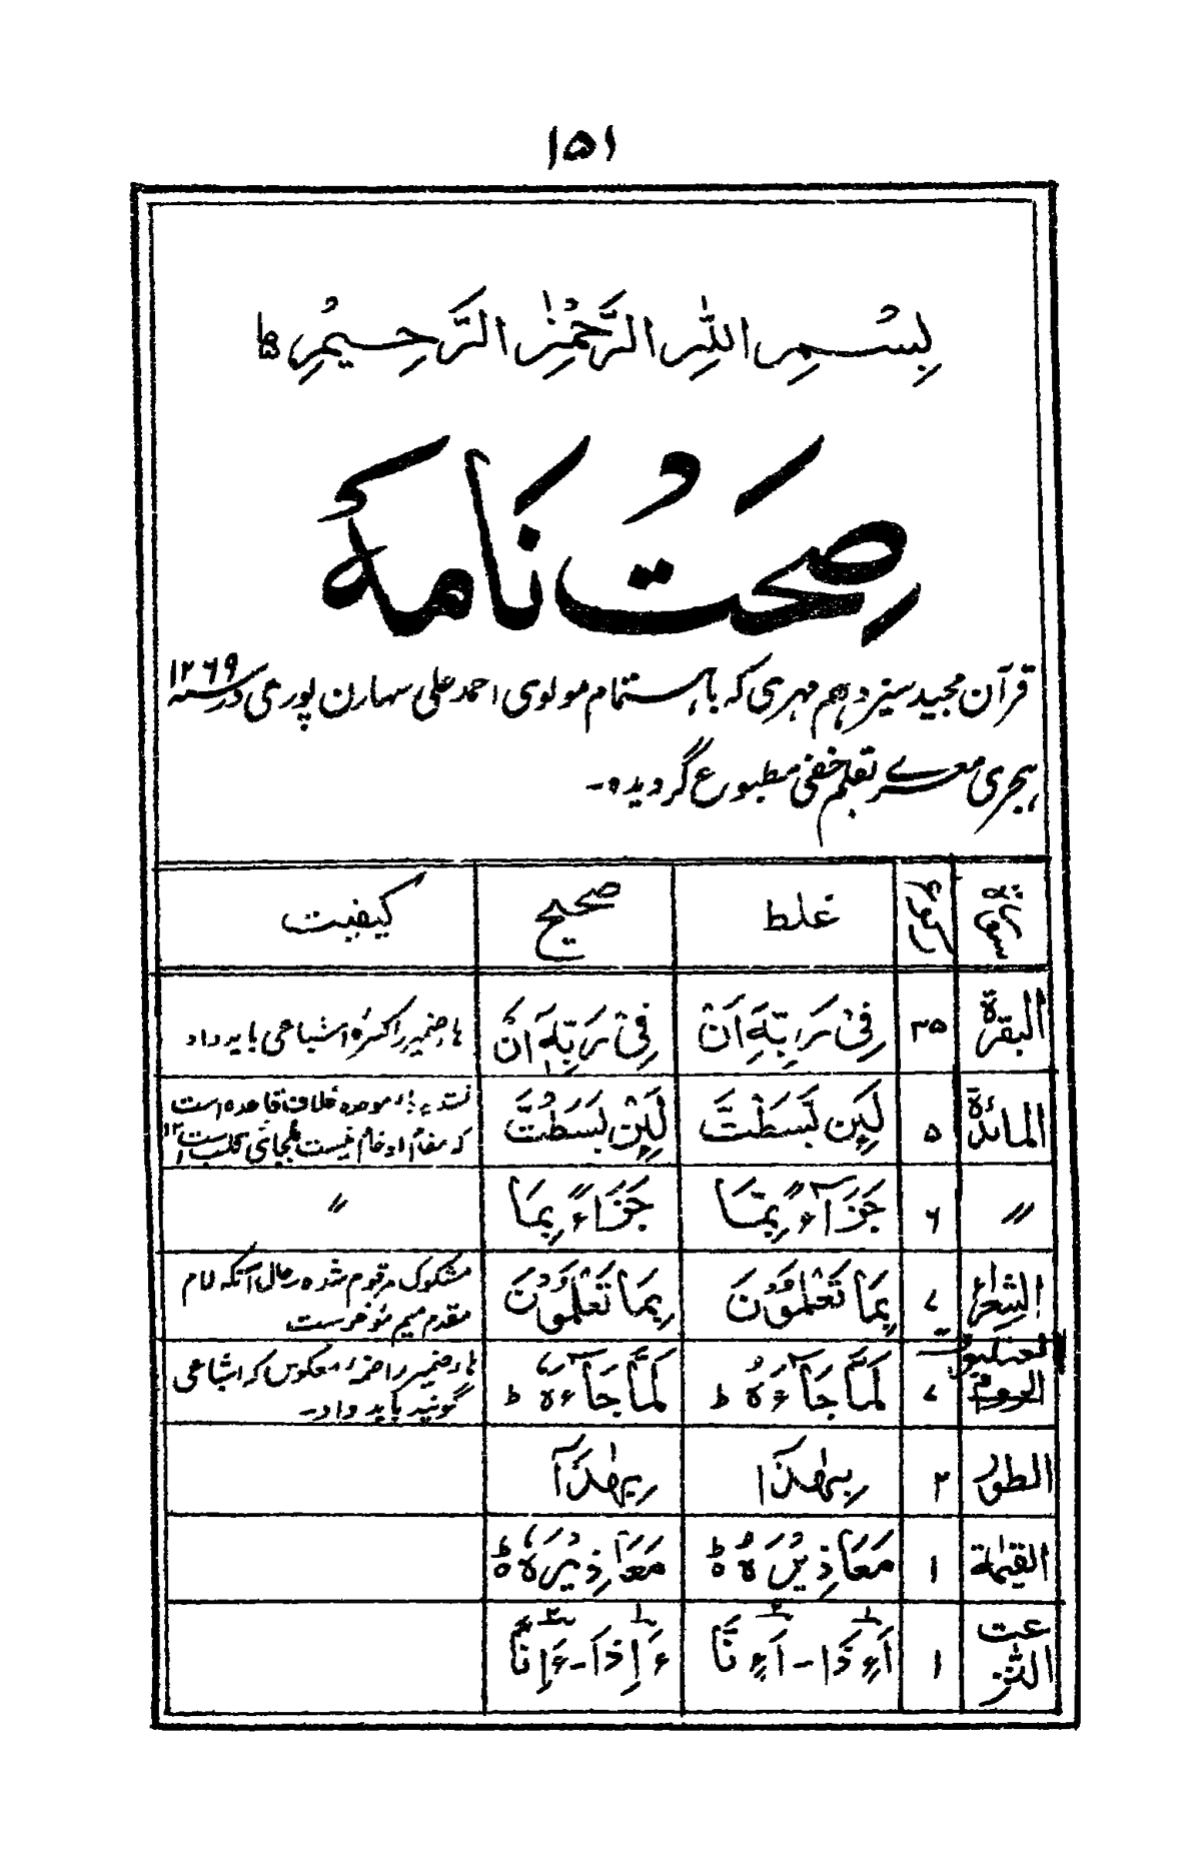 ۱۵۱
بِسْمِ اللّٰهِ الرَّحْمٰنِ الرَّحِيْمِ ۵ط
صِحَتْ نَامَهٔ
قرآن مجید سیزدہم مہری کہ باہتمام مولوی احمد علی سہارن پوری در سنہ ۱۲۶۹
ہجری معرے بقلم خفی مطبوع گردیدہ۔
سورة رکوع غلط صحیح کیفیت
البقرة ۳۵ فِیْ رَبِّهَِ اَنْ فِیْ رَبِّهٖٓ اَنْ ہا، ضمیر را کسرہ اشباعی باید داد
المائدة ۵ لَئِن بَسَطْتَّ لَئِنْۢ بَسَطْتَّ تشدید باء موحدہ خلاف قاعدہ است
کہ مقام ادغام نیست بلجائی قلب است ۱۲
〃 ۶ جَزَآءً بِمَّا جَزَاءً بِمَا 〃
الشعراء ۷ بِمَا تَعْلَمُوْنَ بِمَا تَعْمَلُوْنَ مشکوک مرقوم شدہ حال آنکہ لام
مقدم میم مؤخرست
العنکبوت ۷ لَمَّا جَآءَهُ ط لَمَّا جَآءَهٗ ط ہا، ضمیر را ضمہ معکوس کہ اشباعی
گویند باید داد۔
الطور ۲ بِهٰذَا بِهٰذَآ
القیٰمة ۱ مَعَاذِیْرَهُ ۵ط مَعَاذِیْرَهٗ ۵ط
النّٰزعت ۱ اَءِذَا - اَءِنَّا ءَاِذَا - ءَاِنَّا